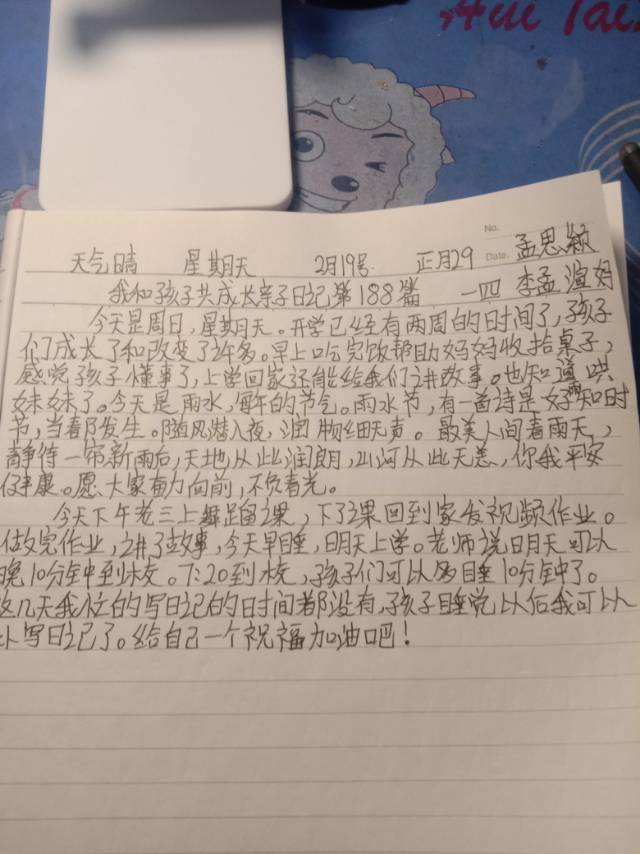 Hui Tai
No.
Date.
孟思颖
天气晴 星期天 2月19号 正月29
我和孩子共成长亲子日记第188篇 一四 李孟渲好
今天是周日，星期天。开学已经有两周的时间了，孩子
们成长了和改变了许多。早上吃完饭帮助妈妈收拾桌子，
感觉孩子懂事了，上学回家还能给我们讲故事。也知道哄
妹妹了。今天是雨水，每年的节气。雨水节，有一首诗是好雨知时
节，当春乃发生。随风潜入夜，润物细无声。最美人间春雨天，
静待一帘新雨后，天地从此润朗，山河从此无恙，你我平安
健康。愿大家奋力向前，不负春光。
今天下午老三上舞蹈课，下了课回到家发视频作业。
做完作业，讲了故事，今天早睡，明天上学。老师说明天可以
晚10分钟到校。7:20到校，孩子们可以多睡10分钟了。
这几天我忙的写日记的时间都没有，孩子睡觉以后我可以
写日记了。给自己一个祝福加油吧！